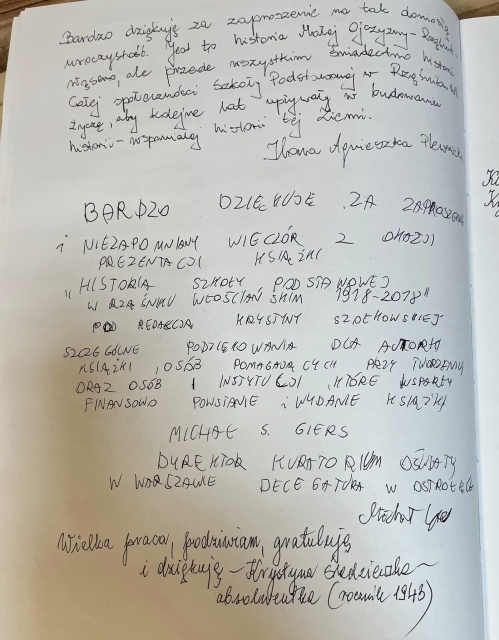 Bardzo dziękuję za zaproszenie na tak doniosłą
uroczystość. Jest to historia Małej Ojczyzny-
wiązana, ale przede wszystkim świadectwo historii
Całej społeczności Szkoły Podstawowej w
Życzę, aby kolejne lat upływały w budowaniu
historii - wspaniałej historii tej Ziemi.
Iwona Agnieszka
BARDZO DZIĘKUJĘ ZA ZAPROSZENIE
i NIEZAPOMNIANY WIECZÓR Z OKAZJI
PREZENTACJI KSIĄŻKI
"HISTORIA SZKOŁY PODSTAWOWEJ
W RZĄŚNIKU WŁOŚCIAŃSKIM 1918-2018"
POD REDAKCJĄ KRYSTYNY
SZCZEGÓLNE PODZIĘKOWANIA DLA AUTORKI
KSIĄŻKI, OSÓB POMAGAJĄCYCH PRZY TWORZENIU
ORAZ OSÓB I INSTYTUCJI, KTÓRE WSPARŁY
FINANSOWO POWSTANIE i WYDANIE KSIĄŻKI
MICHAŁ S. GIERS
DYREKTOR KURATORIUM OŚWIATY
W WARSZAWIE DELEGATURA W OSTROŁĘCE
Wielka praca, podziwiam, gratuluję
i dziękuję - Krystyna
absolwentka (rocznik 1943)